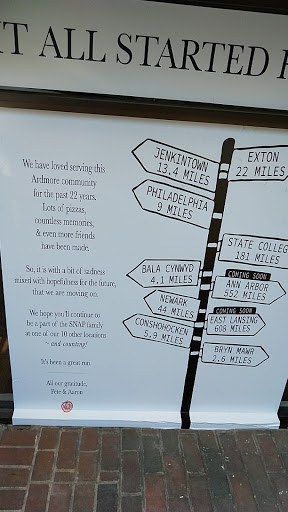 IT ALL STARTED
We have loved serving this
Ardmore community
for the past 22 years.
Lots of pizzas,
countless memories,
& even more friends
have been made.
So, it's with a bit of sadness
mixed with hopefulness for the future,
that we are moving on.
We hope you'll continue to
be a part of the SNAP family
at one of our 10 other locations
– and counting!
It's been a great run.
All our gratitude,
Pete & Aaron
JENKINTOWN
13.4 MILES
EXTON
22 MILES
PHILADELPHIA
9 MILES
STATE COLLEG
181 MILES
BALA CYNWYD
4.1 MILES
COMING SOON
ANN ARBOR
552 MILES
NEWARK
44 MILES
COMING SOON
EAST LANSING
608 MILES
CONSHOHOCKEN
5.9 MILES
BRYN MAWR
2.6 MILES